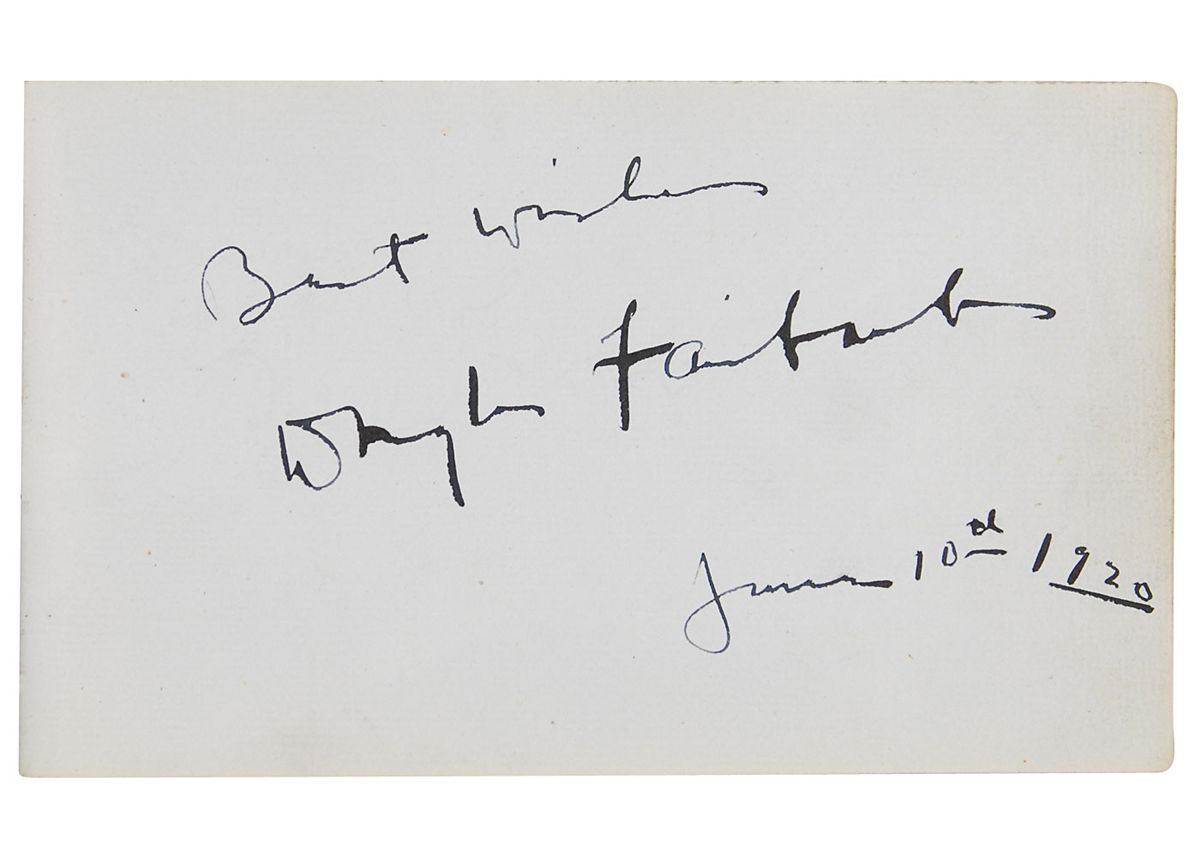 Best wishes
Douglas Fairbanks
June 10th 1920